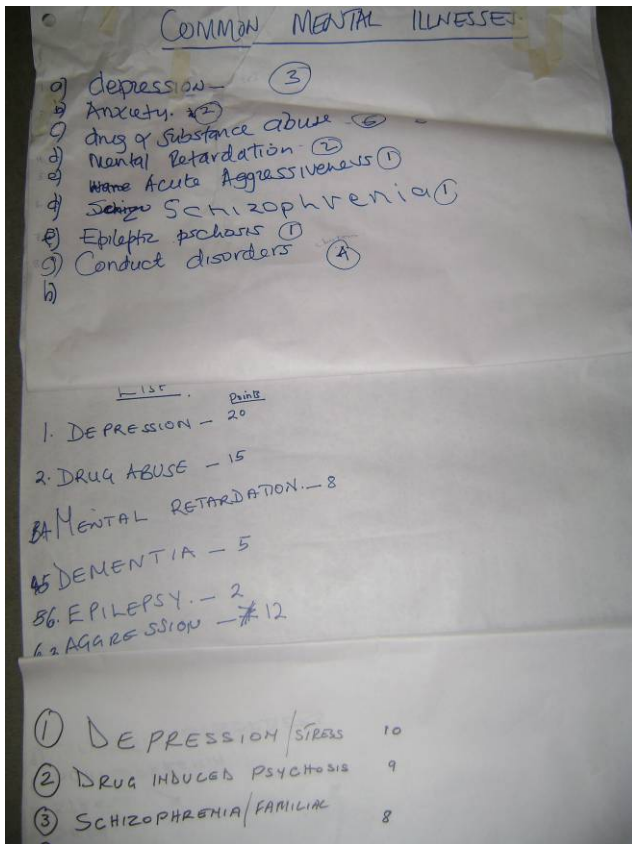 COMMON MENTAL ILLNESSES.
a) depression — 3
b) Anxiety. 2
c) drug & substance abuse 6
d) Mental Retardation 2
e) Acute Aggressiveness 1
f) Schizophrenia 1
Epileptic pschosis 1
g) Conduct disorders 4
h)
LIST. Points
1. DEPRESSION — 20
2. DRUG ABUSE — 15
MENTAL RETARDATION. — 8
DEMENTIA — 5
EPILEPSY. — 2
AGGRESSION — 12
1 DEPRESSION/STRESS 10
2 DRUG INDUCED PSYCHOSIS 9
3 SCHIZOPHRENIA/FAMILIAL 8